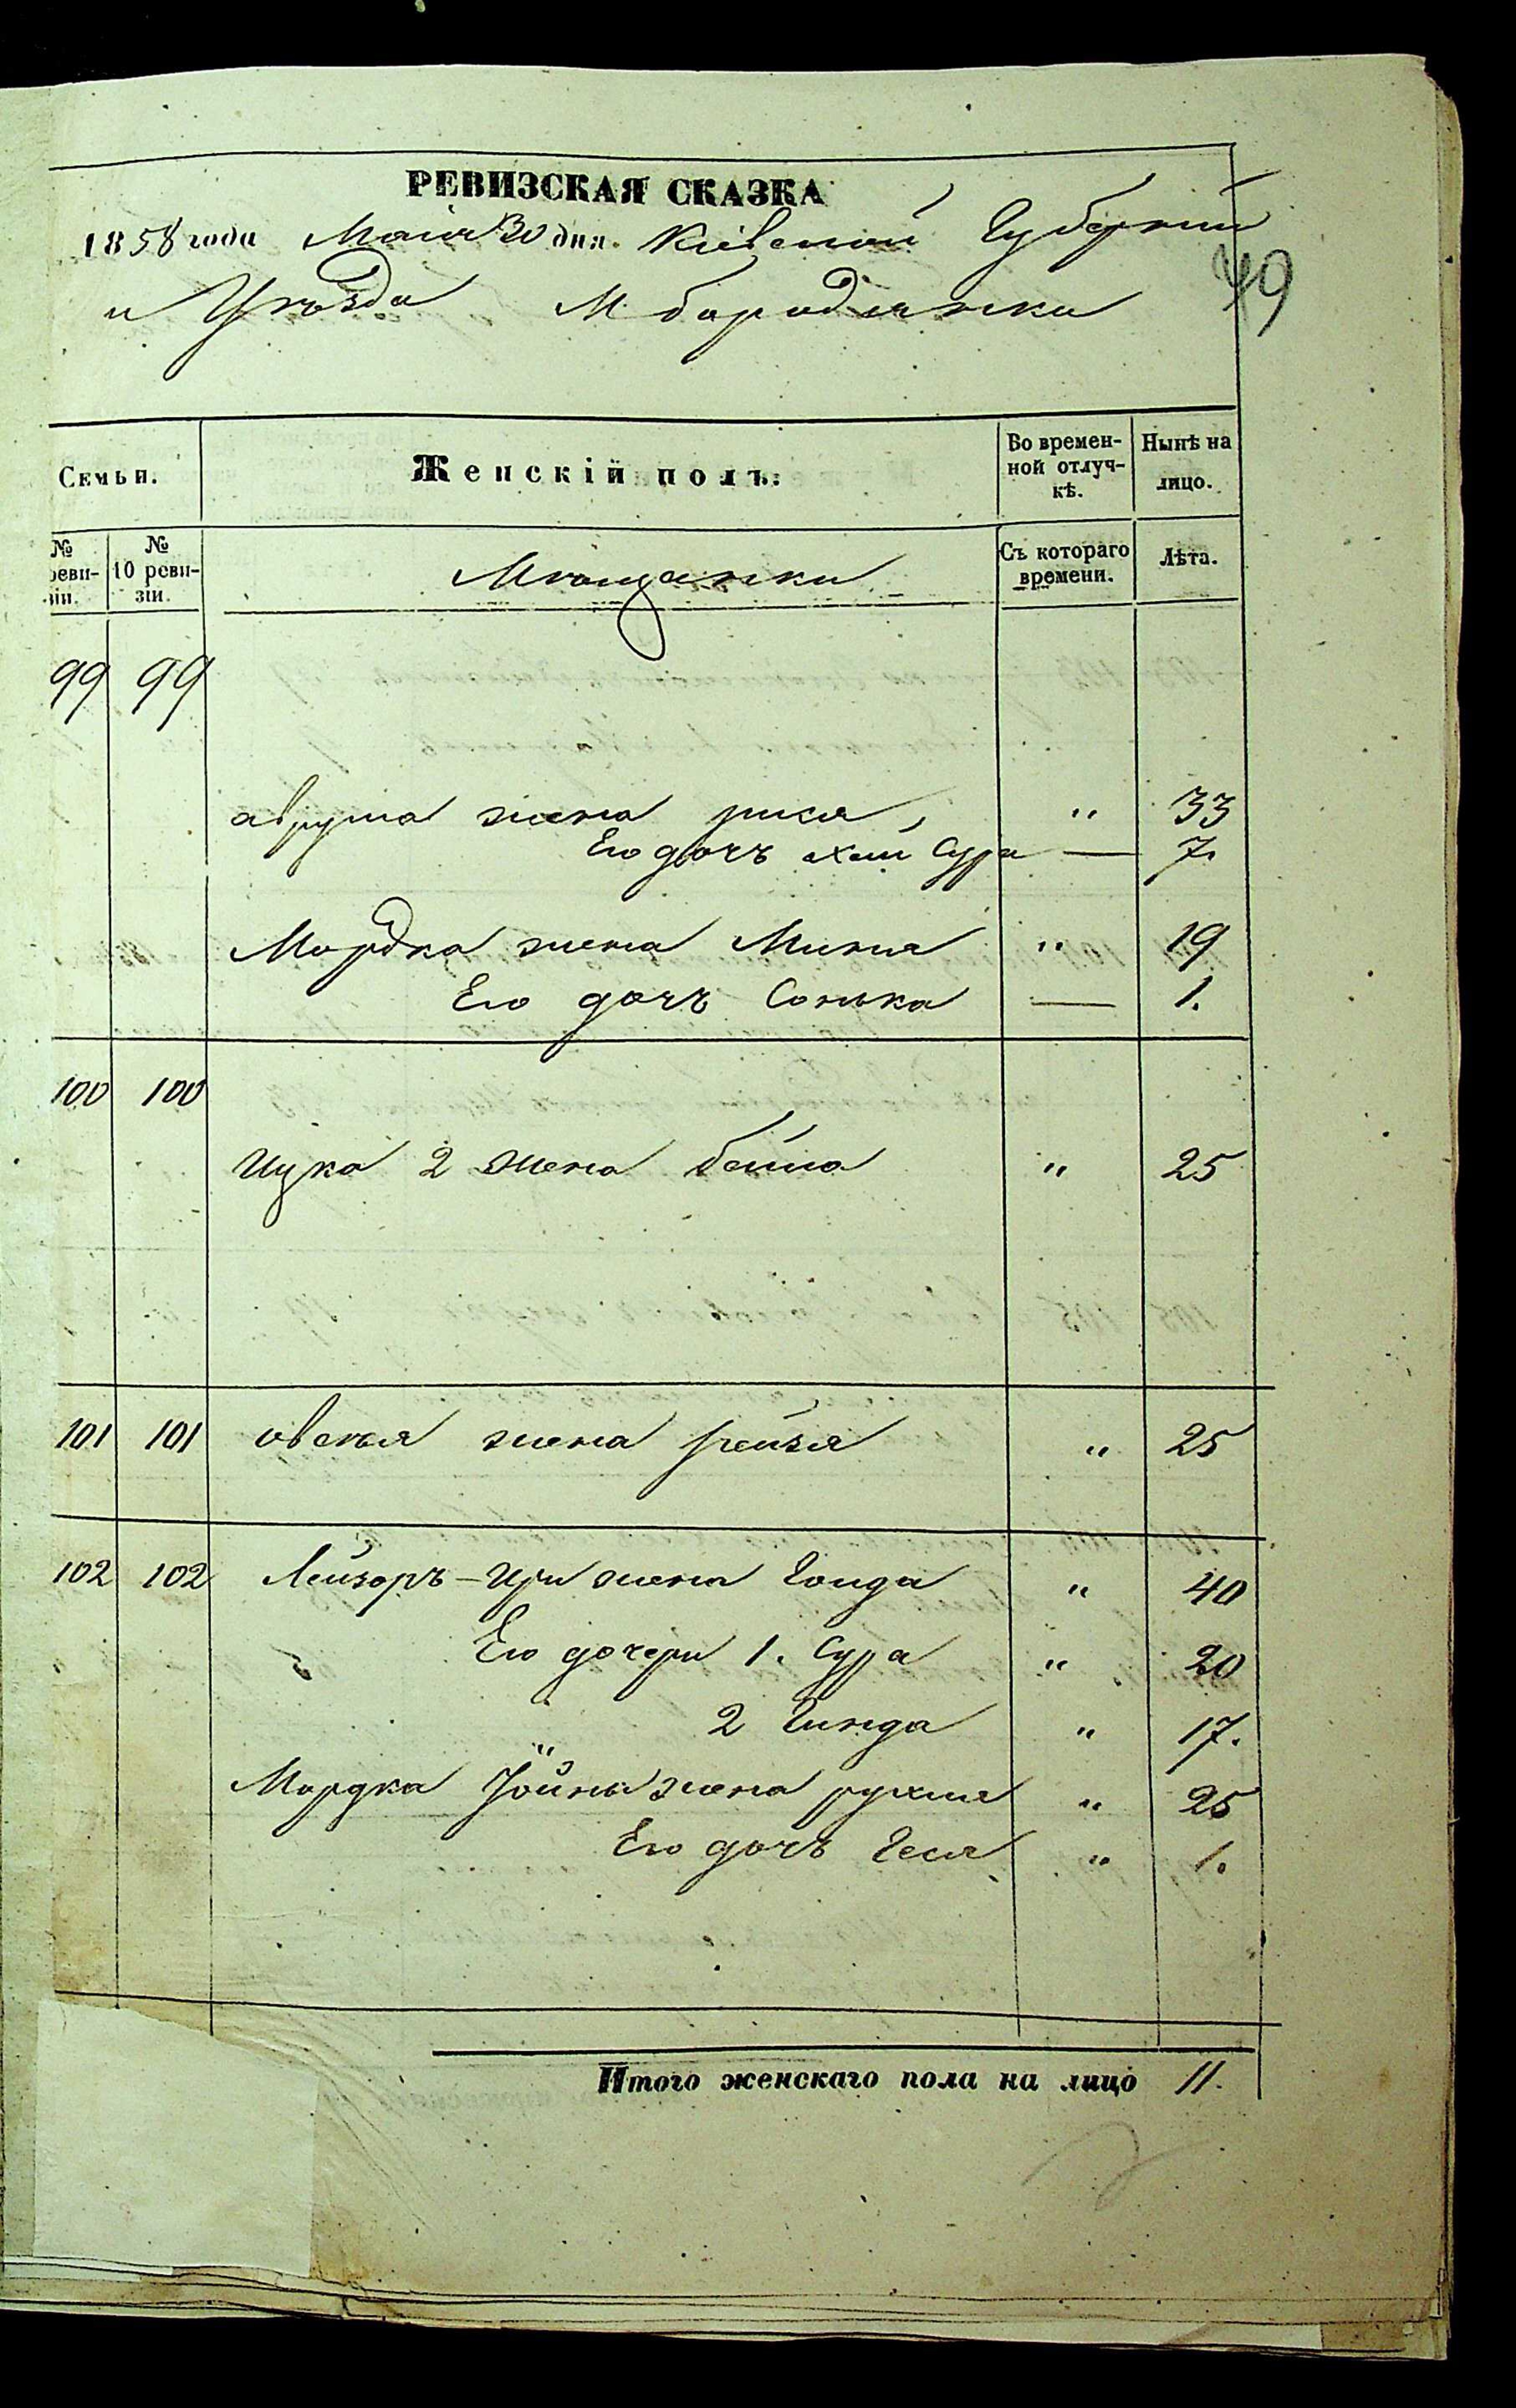 РЕВИЗСКАЯ СКАЗКА
1858 года Маія 30 дня. Кіевской Губерніи
и Уѣзда М бородянки
49
Семьи. Женскій полъ. Во времен-ной отлуч-кѣ. Нынѣ на лицо.
№ реви-зіи. № 10 реви-зіи. Мѣщанки Съ котораго времени. Лѣта.
99 99
аврума жена рися, " 33
Его дочъ хаи Сура — 7.
Мордка жена Миня " 19
Его дочъ Сонька — 1.
100 100
Ицка 2 жена бейла " 25
101 101 овсея жена рейзя " 25
102 102 Лейзоръ - жена " 40
Его дочери 1. Сура " 20
2 Гинда " 17.
Мордка Іойны жена рухля " 25
Его дочъ Геся " 1.
Итого женскаго пола на лицо 11.